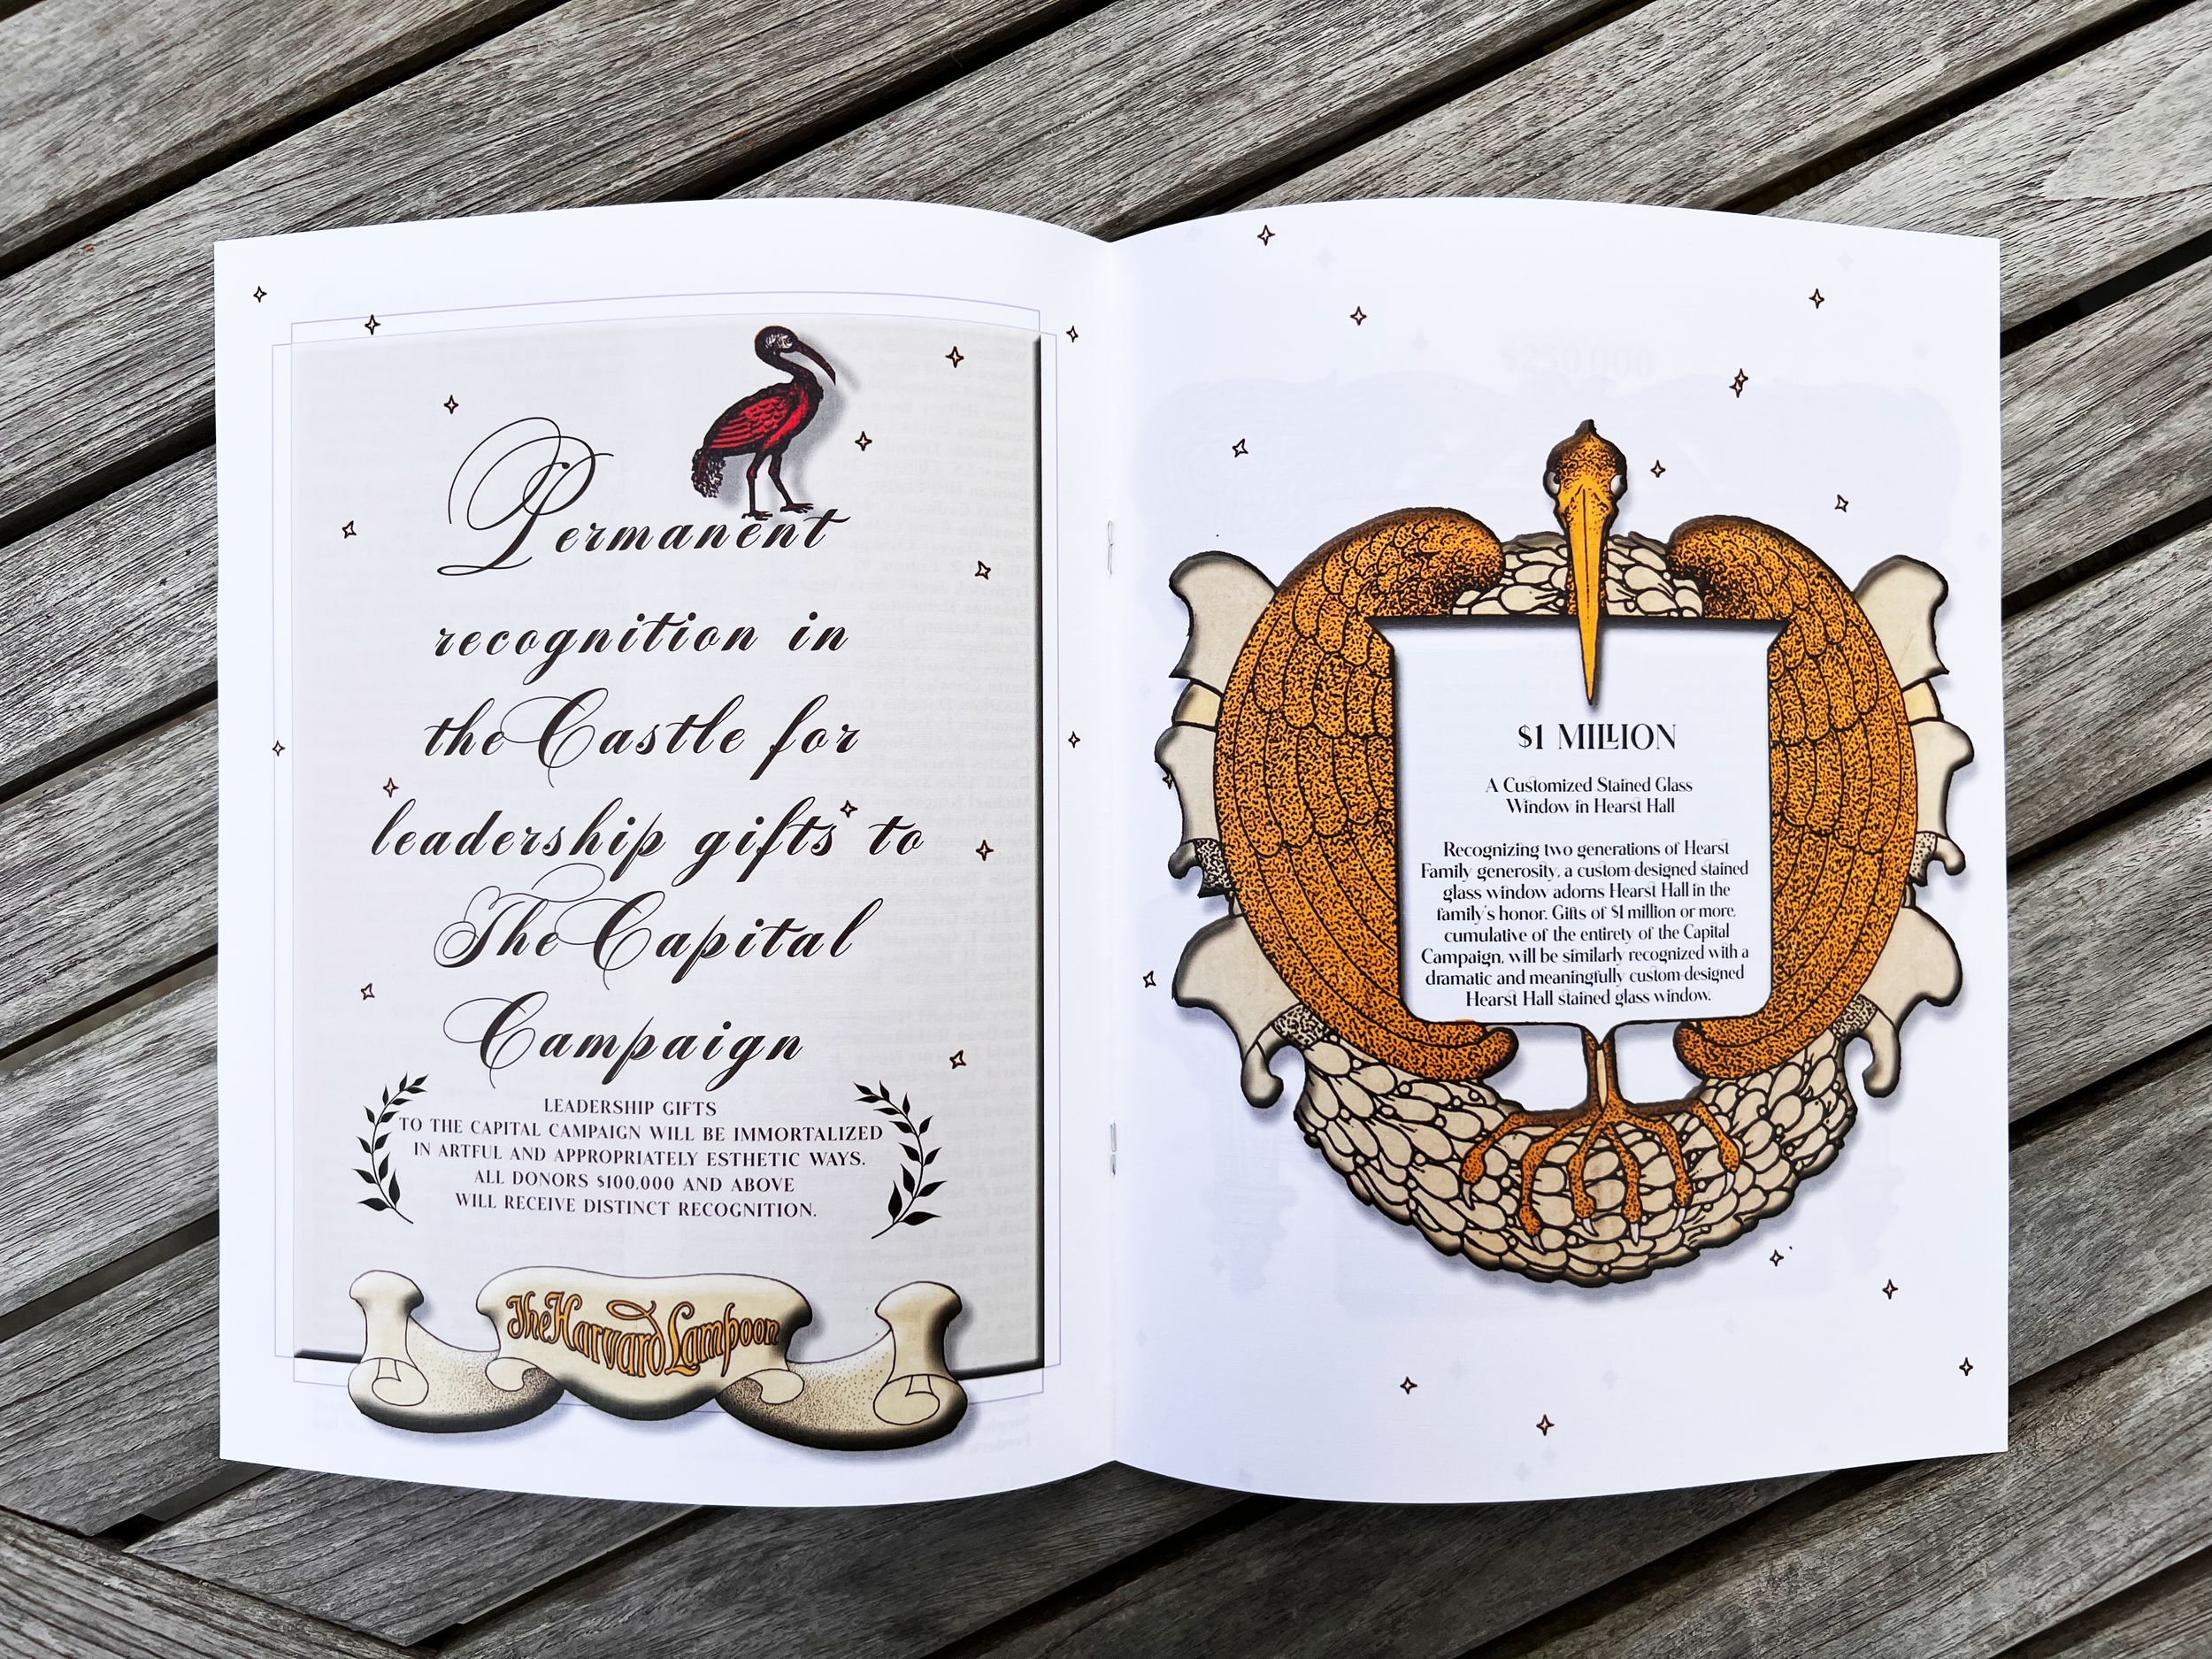 Permanent
recognition in
the Castle for
leadership gifts to
The Capital
Campaign
LEADERSHIP GIFTS
TO THE CAPITAL CAMPAIGN WILL BE IMMORTALIZED
IN ARTFUL AND APPROPRIATELY ESTHETIC WAYS.
ALL DONORS $100,000 AND ABOVE
WILL RECEIVE DISTINCT RECOGNITION.
The Harvard Lampoon
$250,000
$1 MILLION
A Customized Stained Glass
Window in Hearst Hall
Recognizing two generations of Hearst
Family generosity, a custom-designed stained
glass window adorns Hearst Hall in the
family's honor. Gifts of $1 million or more,
cumulative of the entirety of the Capital
Campaign, will be similarly recognized with a
dramatic and meaningfully custom-designed
Hearst Hall stained glass window.